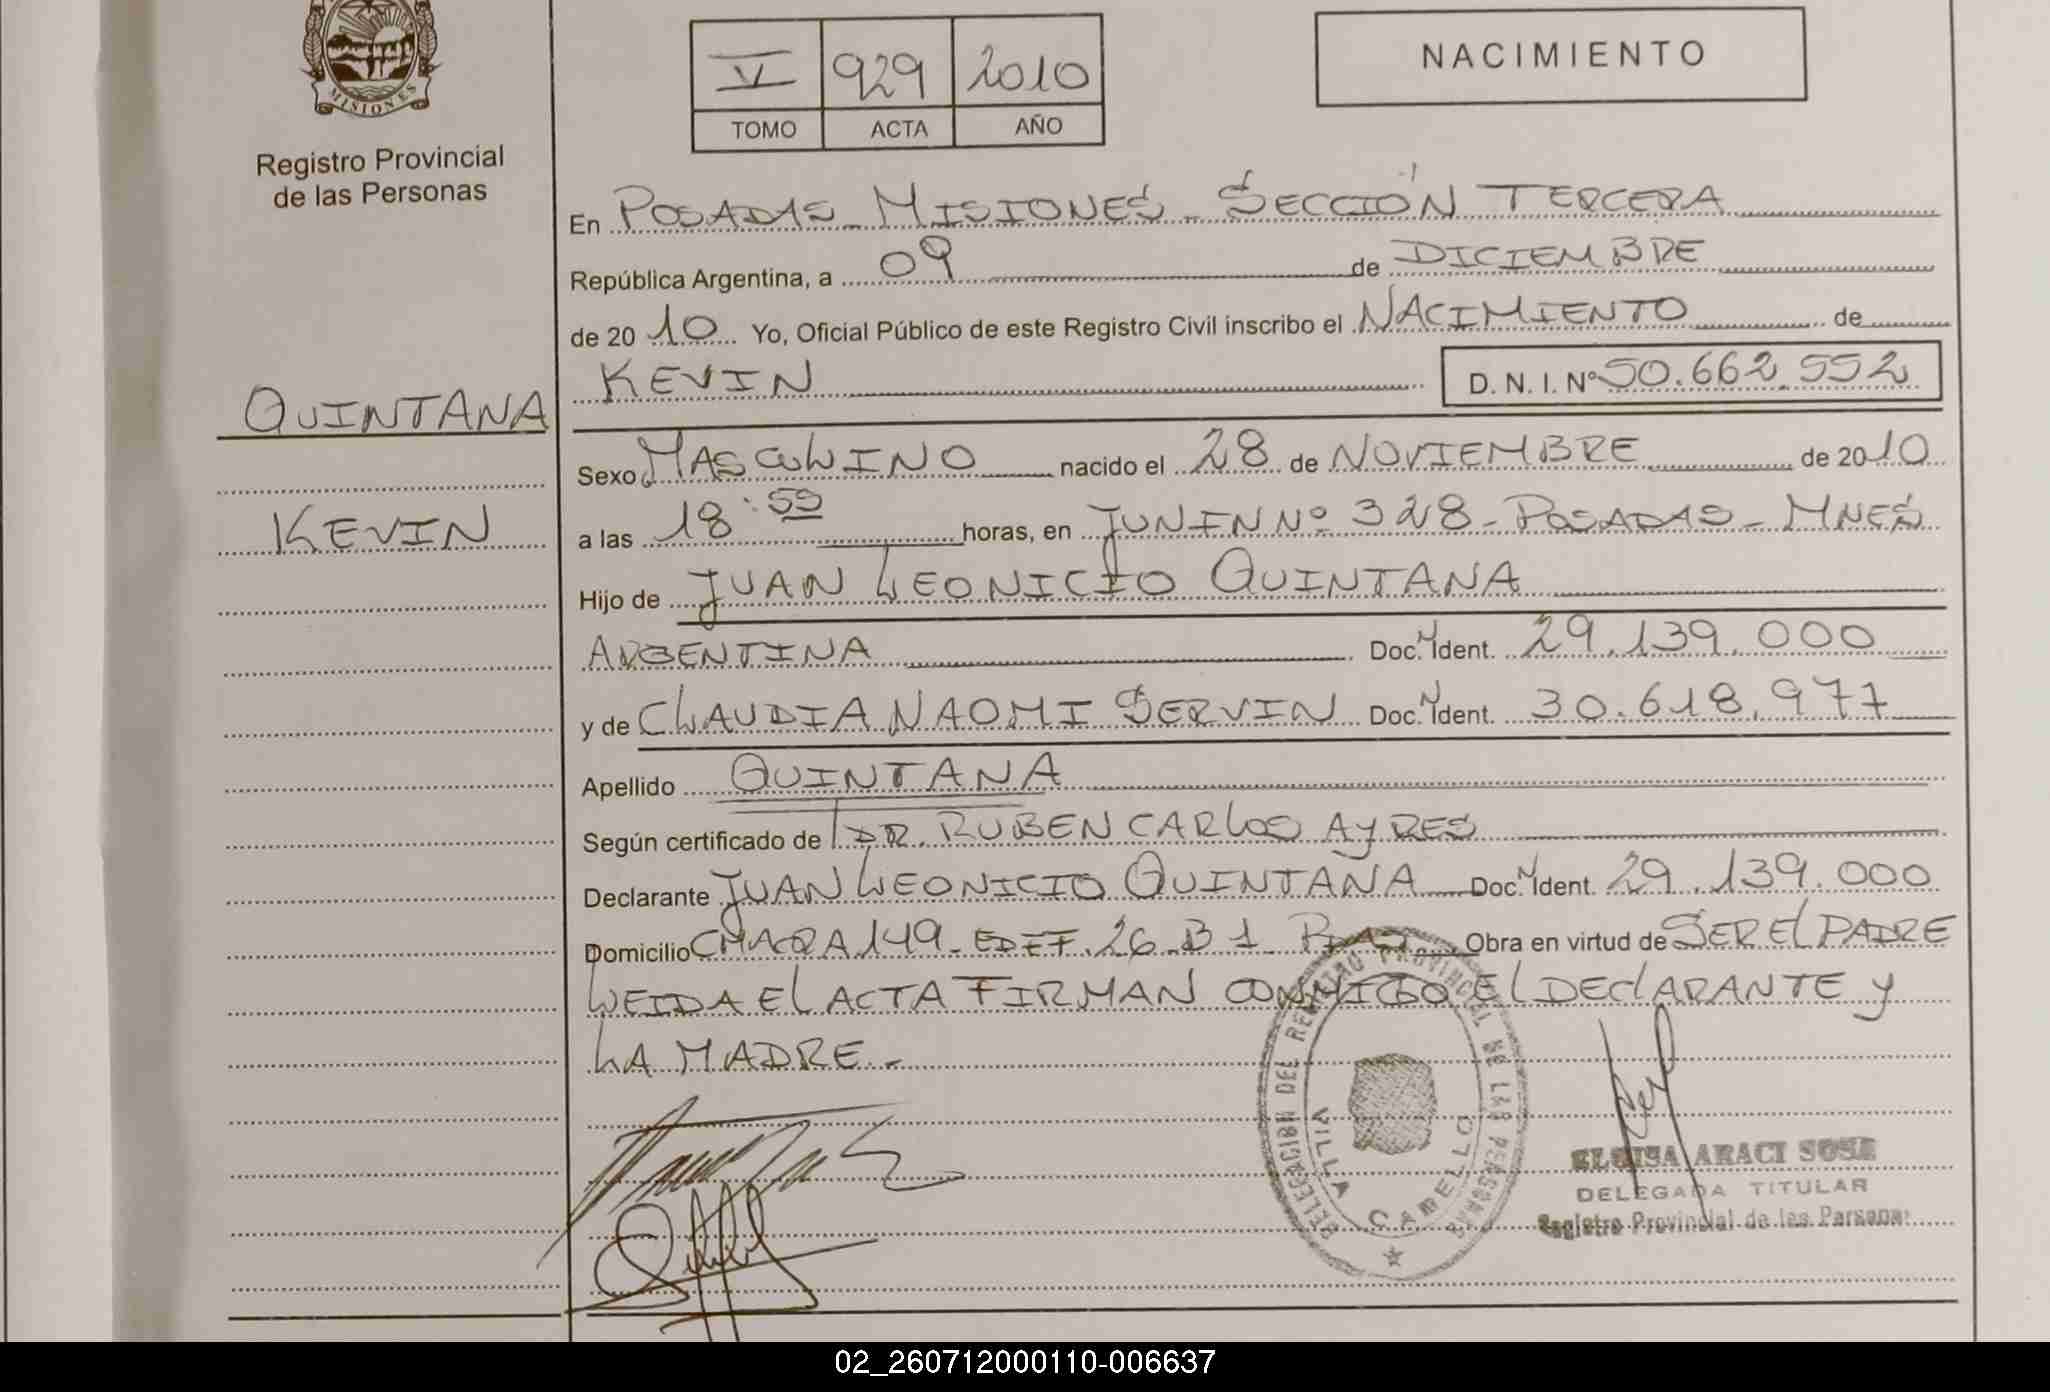 MISIONES
Registro Provincial
de las Personas
V 929 2010
TOMO ACTA AÑO
NACIMIENTO
En POSADAS - MISIONES - SECCIÓN TERCERA
República Argentina, a 09 de DICIEMBRE
de 2010 Yo, Oficial Público de este Registro Civil inscribo el NACIMIENTO de
KEVIN D. N. I. Nº 50.662.552
QUINTANA
KEVIN
Sexo MASCULINO nacido el 28 de NOVIEMBRE de 2010
a las 18:59 horas, en JUNIN Nº 328 - POSADAS - MNES
Hijo de JUAN LEONICIO QUINTANA
ARGENTINA Doc. N Ident. 29.139.000
y de CLAUDIA NAOMI SERVIN Doc. N Ident. 30.618.977
Apellido QUINTANA
Según certificado de DR. RUBEN CARLOS AYRES
Declarante JUAN LEONICIO QUINTANA Doc. N Ident. 29.139.000
Domicilio CHACRA 149 - EDIF. 26 - B 1 Obra en virtud de SER EL PADRE
LEIDA EL ACTA FIRMAN CONMIGO EL DECLARANTE Y
LA MADRE.-
DELEGACION DEL REGISTRO PROVINCIAL DE LAS PERSONAS
VILLA CABELLO
ELOISA ARACI SOSA
DELEGADA TITULAR
Registro Provincial de las Personas
02_260712000110-006637